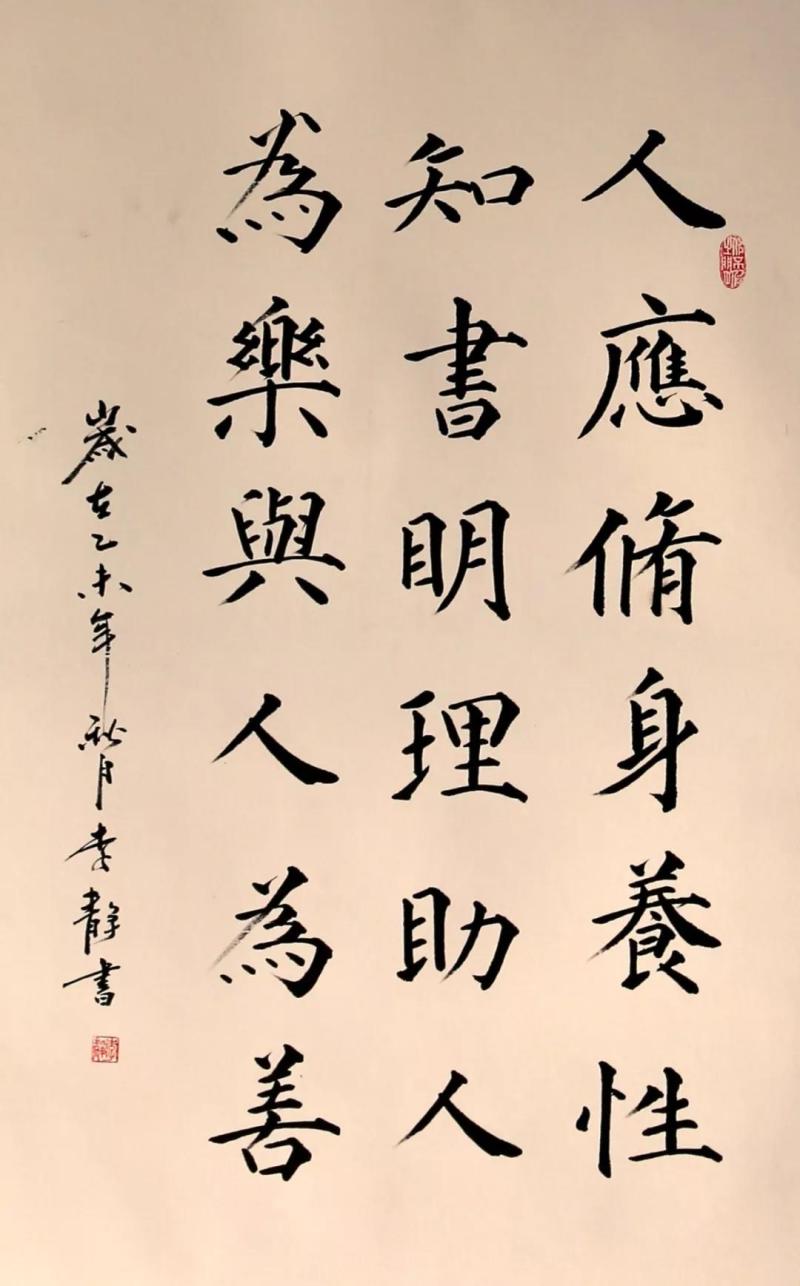 人應脩身養性
知書明理助人
為樂與人為善
歲在乙未年秋月李靜書